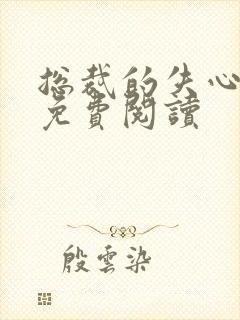 总裁的失心
免費閱讀
殷雲染